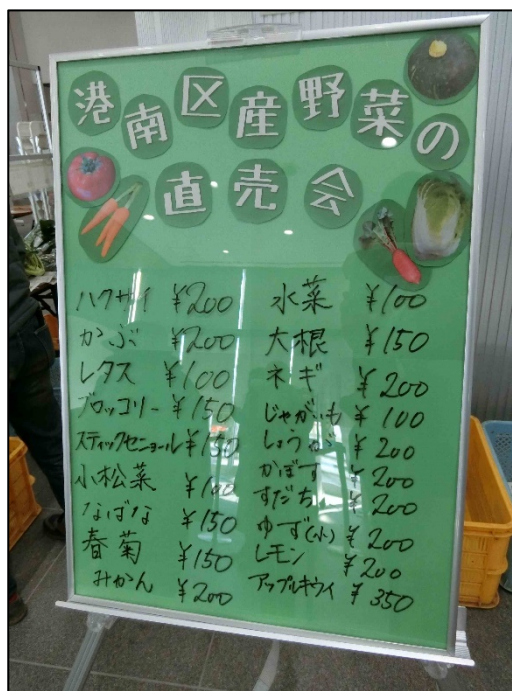 港南区産野菜の
直売会
ハクサイ ¥200
かぶ ¥200
レタス ¥100
ブロッコリー ¥150
スティックセニョール ¥150
小松菜 ¥100
なばな ¥150
春菊 ¥150
みかん ¥200
水菜 ¥100
大根 ¥150
ネギ ¥200
じゃがいも ¥100
しょうが ¥200
かぼす ¥200
すだち ¥200
ゆず(小) ¥200
レモン ¥200
アップルキウイ ¥350